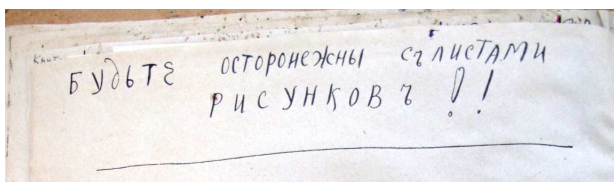 Книг
БУДЬТЕ ОСТОРОНЕЖНЫ СЪ ЛИСТАМИ
РИСУНКОВЪ !!